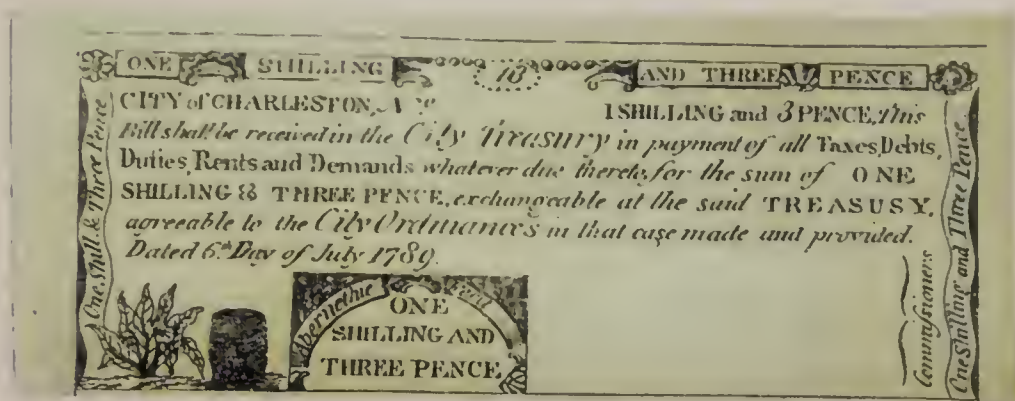 ONE SHILLING AND THREE PENCE
CITY of CHARLESTON, No. 1 SHILLING and 3 PENCE, This
Bill shall be received in the City Treasury in payment of all Taxes, Debts,
Duties, Rents and Demands whatever due thereto, for the sum of ONE
SHILLING & THREE PENCE, exchangeable at the said TREASUSY,
agreeable to the City Ordinances in that case made and provided.
Dated 6.th Day of July 1789.
One Shill. & Three Pence
Abernethie
ONE
SHILLING AND
THREE PENCE
Commissioners
One Shilling and Three Pence